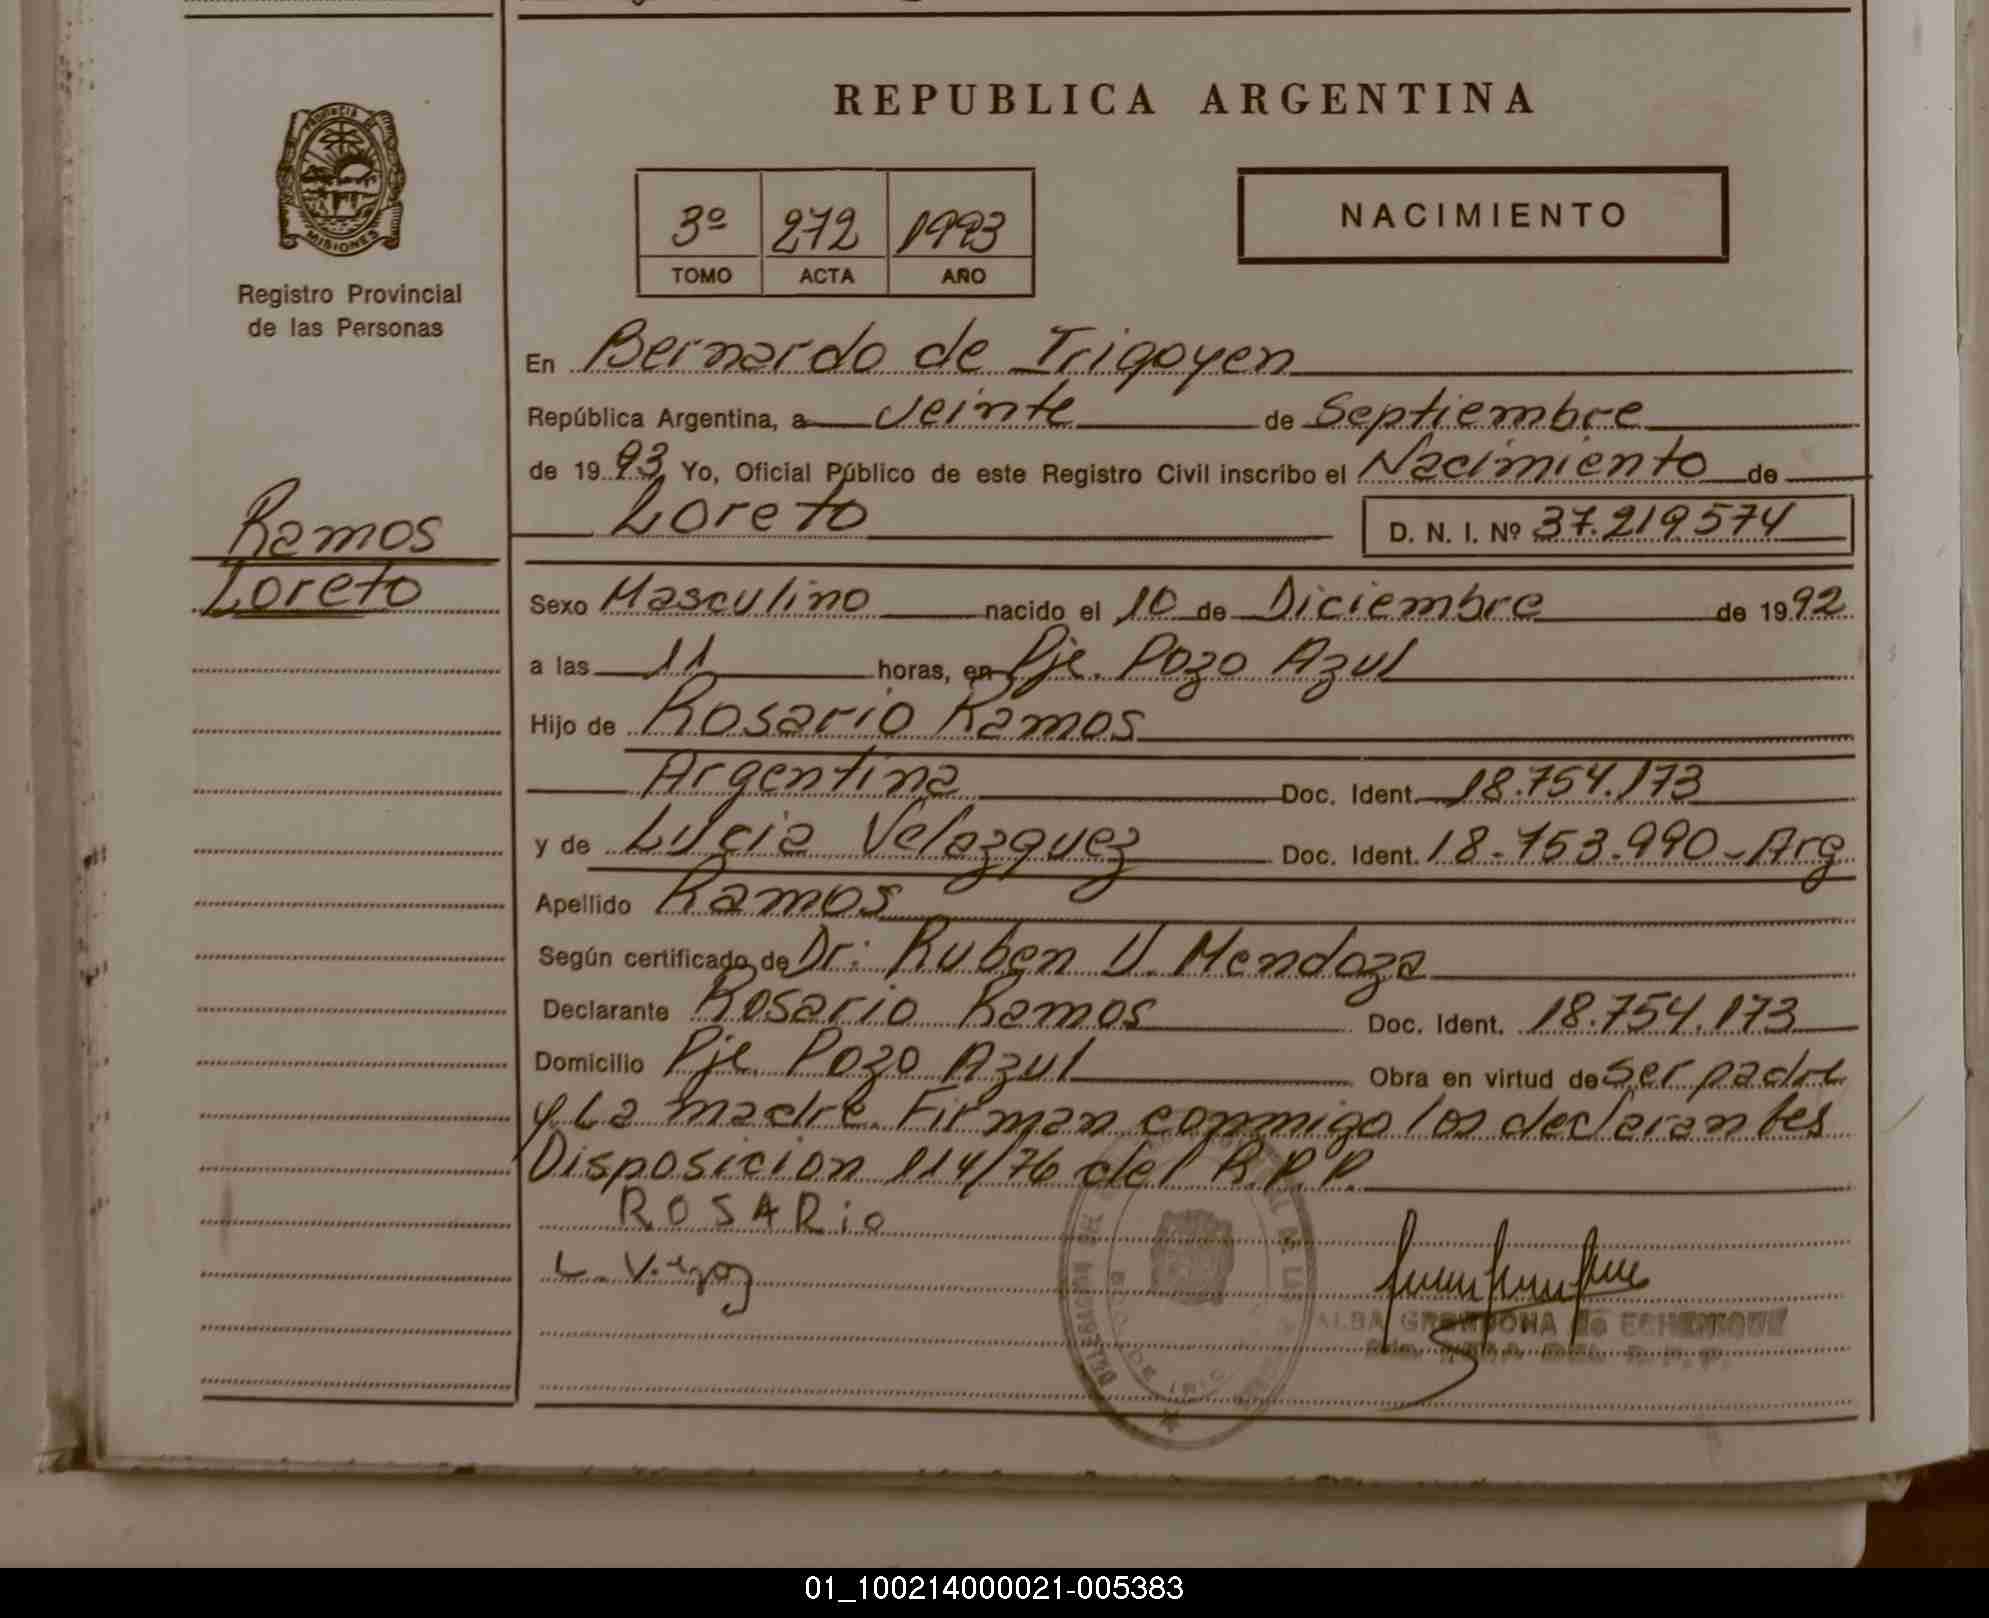 REPUBLICA ARGENTINA
PROVINCIA DE
MISIONES
Registro Provincial
de las Personas
3º 272 1993
TOMO ACTA AÑO
NACIMIENTO
En Bernardo de Irigoyen
República Argentina, a veinte de Septiembre
de 1993 Yo, Oficial Público de este Registro Civil inscribo el Nacimiento de
Loreto D. N. I. Nº 37.219574
Ramos
Loreto
Sexo Masculino nacido el 10 de Diciembre de 1992
a las 11 horas, en Pje. Pozo Azul
Hijo de Rosario Ramos
Argentina Doc. Ident. 18.754.173
y de Lucia Velazquez Doc. Ident. 18.753.990-Arg
Apellido Ramos
Según certificado de Dr: Ruben V. Mendoza
Declarante Rosario Ramos Doc. Ident. 18.754.173
Domicilio Pje Pozo Azul Obra en virtud de ser padre
y La madre. Firman conmigo los declarantes
Disposicion 114/76 del R.P.P.
ROSARio
L. V.
ALBA GRONDONA de ECHENIQUE
DEL R.P.P.
01_100214000021-005383